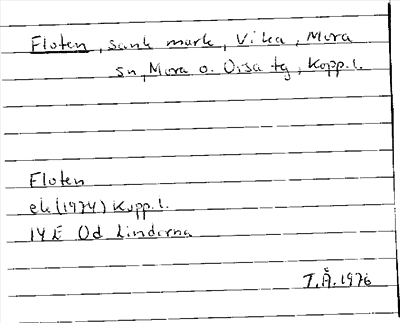 Floten, sank mark, Vika, Mora
sn, Mora o. Orsa tg, Kopp. l.
Floten
ek (1974) Kopp. l.
14E 0d Linderna
T.Å. 1976